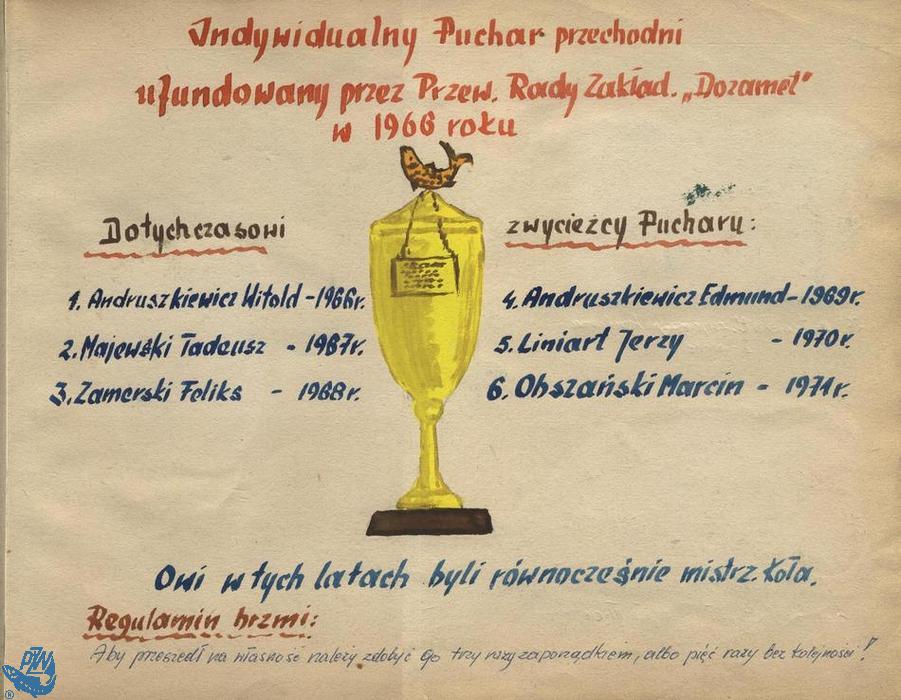 Indywidualny Puchar przechodni
ufundowany przez Przew. Rady Zakład. „Dozamet"
w 1966 roku
Dotychczasowi zwycięzcy Pucharu:
1. Andruszkiewicz Witold - 1966r.
2. Majewski Tadeusz - 1967r.
3. Zamerski Feliks - 1968r.
4. Andruszkiewicz Edmund - 1969r.
5. Liniart Jerzy - 1970r.
6. Obszański Marcin - 1971r.
Oni w tych latach byli równocześnie mistrz. Koła.
Regulamin brzmi:
Aby przeszedł na własność należy zdobyć Go trzy razy z porządkiem, albo pięć razy bez kolejności!
PZW